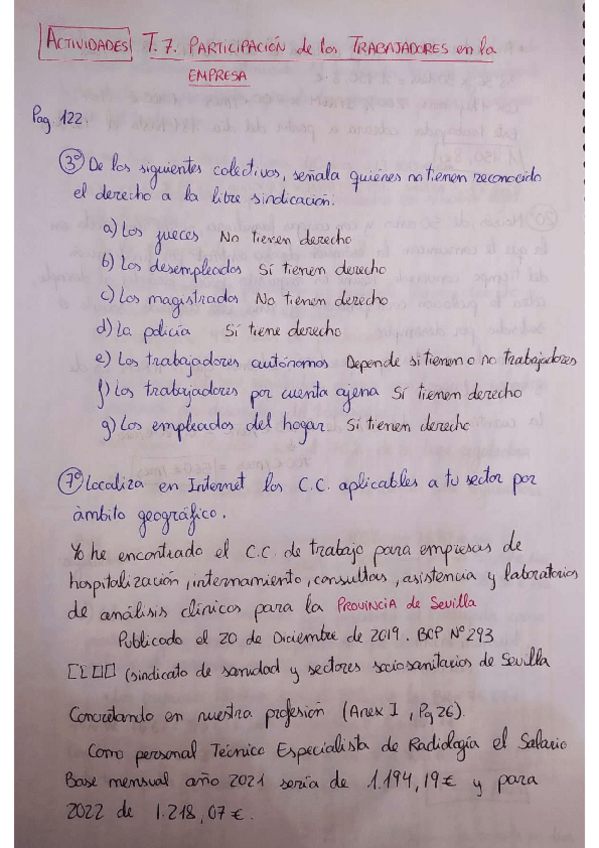 ACTIVIDADES T.7. PARTICIPACIÓN de los TRABAJADORES en la
EMPRESA
Pag. 122.
3º De los siguientes colectivos, señala quiénes no tienen reconocido
el derecho a la libre sindicación.
a) Los jueces No tienen derecho
b) Los desempleados Sí tienen derecho
c) Los magistrados No tienen derecho
d) La policía Sí tiene derecho
e) Los trabajadores autónomos Depende si tienen o no trabajadores
f) Los trabajadores por cuenta ajena Sí tienen derecho
g) Los empleados del hogar Sí tienen derecho
7º Localiza en Internet los C.C. aplicables a tu sector por
ámbito geográfico.
Yo he encontrado el C.C. de trabajo para empresas de
hospitalización, internamiento, consultas, asistencia y laboratorios
de análisis clínicos para la PROVINCIA de Sevilla
Publicado el 20 de Diciembre de 2019. BCP Nº 293
(sindicato de sanidad y sectores sociosanitarios de Sevilla
Concretando en nuestra profesión (Anex I, Pg 26).
Como personal Técnico Especialista de Radiología el Salario
Base mensual año 2021 sería de 1.194,19€ y para
2022 de 1.218,07€.